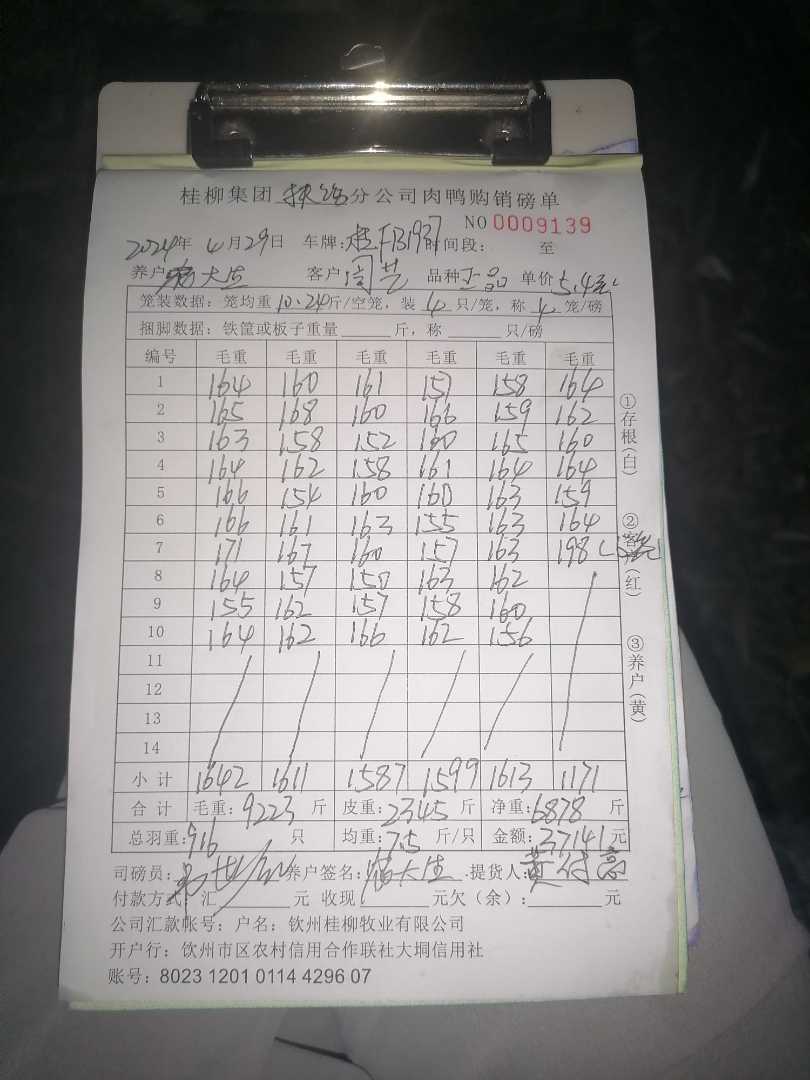 桂柳集团 分公司肉鸭购销磅单
NO 0009139
2024年 4月29日 车牌: 桂FB1937 时间段: 至
养户 大生 客户 闫芝 品种 正品 单价 5.4元
笼装数据: 笼均重 10.24斤/空笼, 装 4 只/笼, 称 4 笼/磅
捆脚数据: 铁筐或板子重量 斤, 称 只/磅
编号 毛重 毛重 毛重 毛重 毛重 毛重
1 164 160 161 157 158 164
2 165 168 160 166 159 162
3 163 158 152 160 165 160
4 164 162 158 161 164 164
5 166 154 160 160 163 159
6 166 161 163 155 163 164
7 171 167 160 157 163 198
8 164 157 150 163 162
9 155 162 157 158 160
10 164 162 166 162 156
11
12
13
14
小计 1642 1611 1587 1599 1613 1171
合计 毛重: 9223 斤 皮重: 2345 斤 净重: 6878 斤
总羽重: 916 只 均重: 7.5 斤/只 金额: 37141 元
司磅员: 养户签名: 大生 提货人: 黄
付款方式: 汇 元 收现 元欠(余): 元
公司汇款帐号: 户名: 钦州桂柳牧业有限公司
开户行: 钦州市区农村信用合作联社大垌信用社
账号: 8023 1201 0114 4296 07
①存根(白)
②客户(红)
③养户(黄)